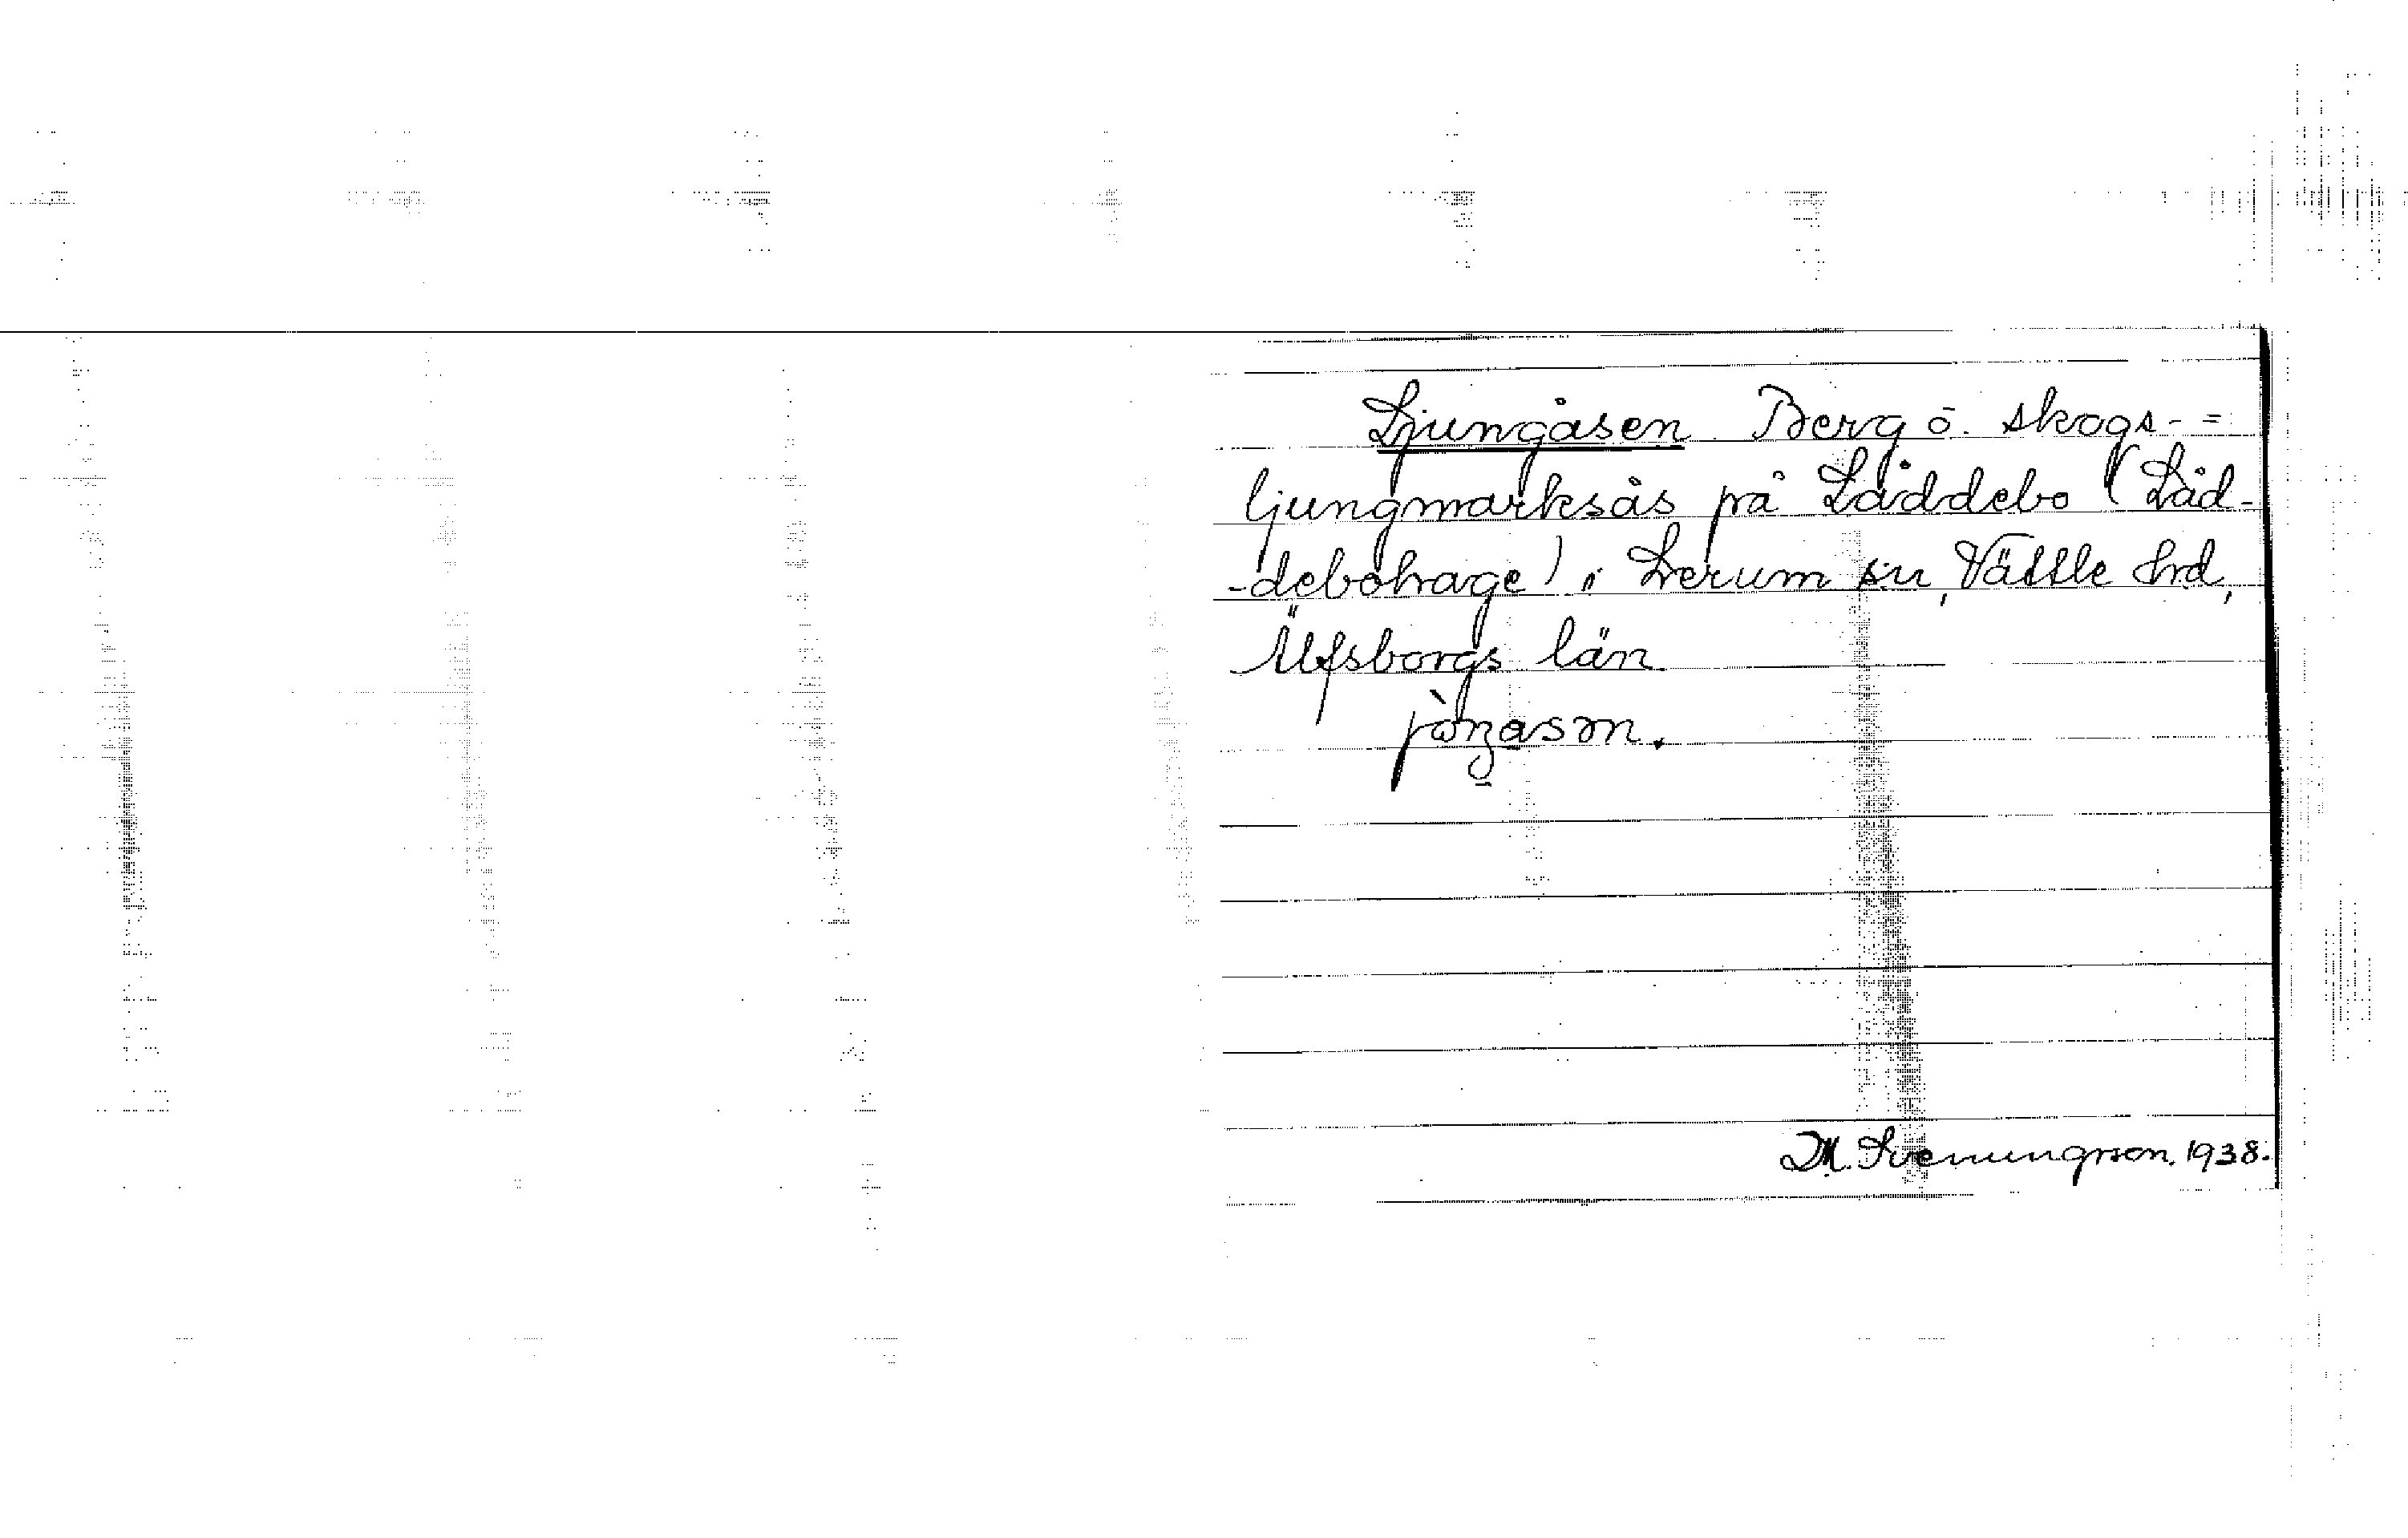 Ljungåsen. Berg o. skogs- =
ljungmarksås på Låddebo (Låd-
-debohage) i Lerum sn, Vättle hrd,
Älfsborgs län
M. Svenungsson. 1938.